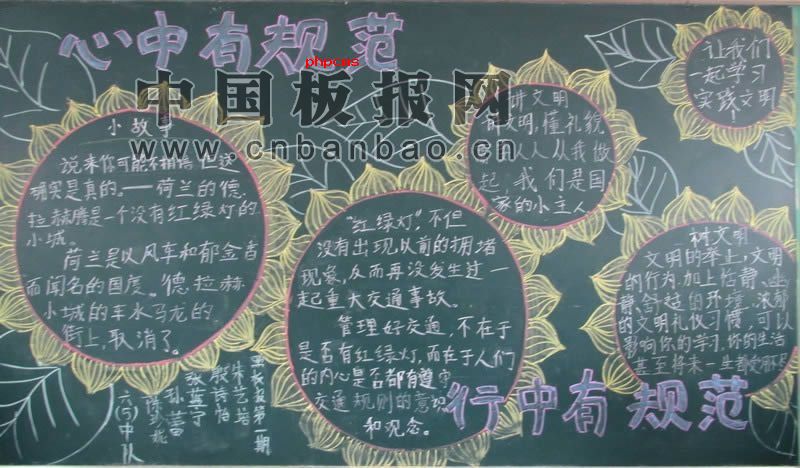 心中有规范
phpcms
中国板报网
www.cnbanbao.cn
小故事
说来你可能不相信,但这
确实是真的。——荷兰的德
拉赫腾是一个没有红绿灯的
小城。
荷兰是以风车和郁金香
而闻名的国度。德拉赫
小城的车水马龙的
街上,取消了。
"红绿灯",不但
没有出现以前的拥堵
现象,反而再没发生过一
起重大交通事故。
管理好交通,不在于
是否有红绿灯,而在于人们
的内心是否都有遵守
交通规则的意识
和观念。
讲文明
讲文明,懂礼貌
人人从我做
起,我们是国
家的小主人
让我们
一起学习
实践文明
!
树文明
文明的举止,文明
的行为,加上恬静、幽
静、舒适的环境,浓郁
的文明礼仪习惯,可以
影响你的学习,你的生活
甚至将来一生都受用
行中有规范
黑板报第一期
朱艺培
孙蕾
六(5)中队